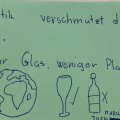 tik verschmutzt d
.
r Glas, weniger Pla